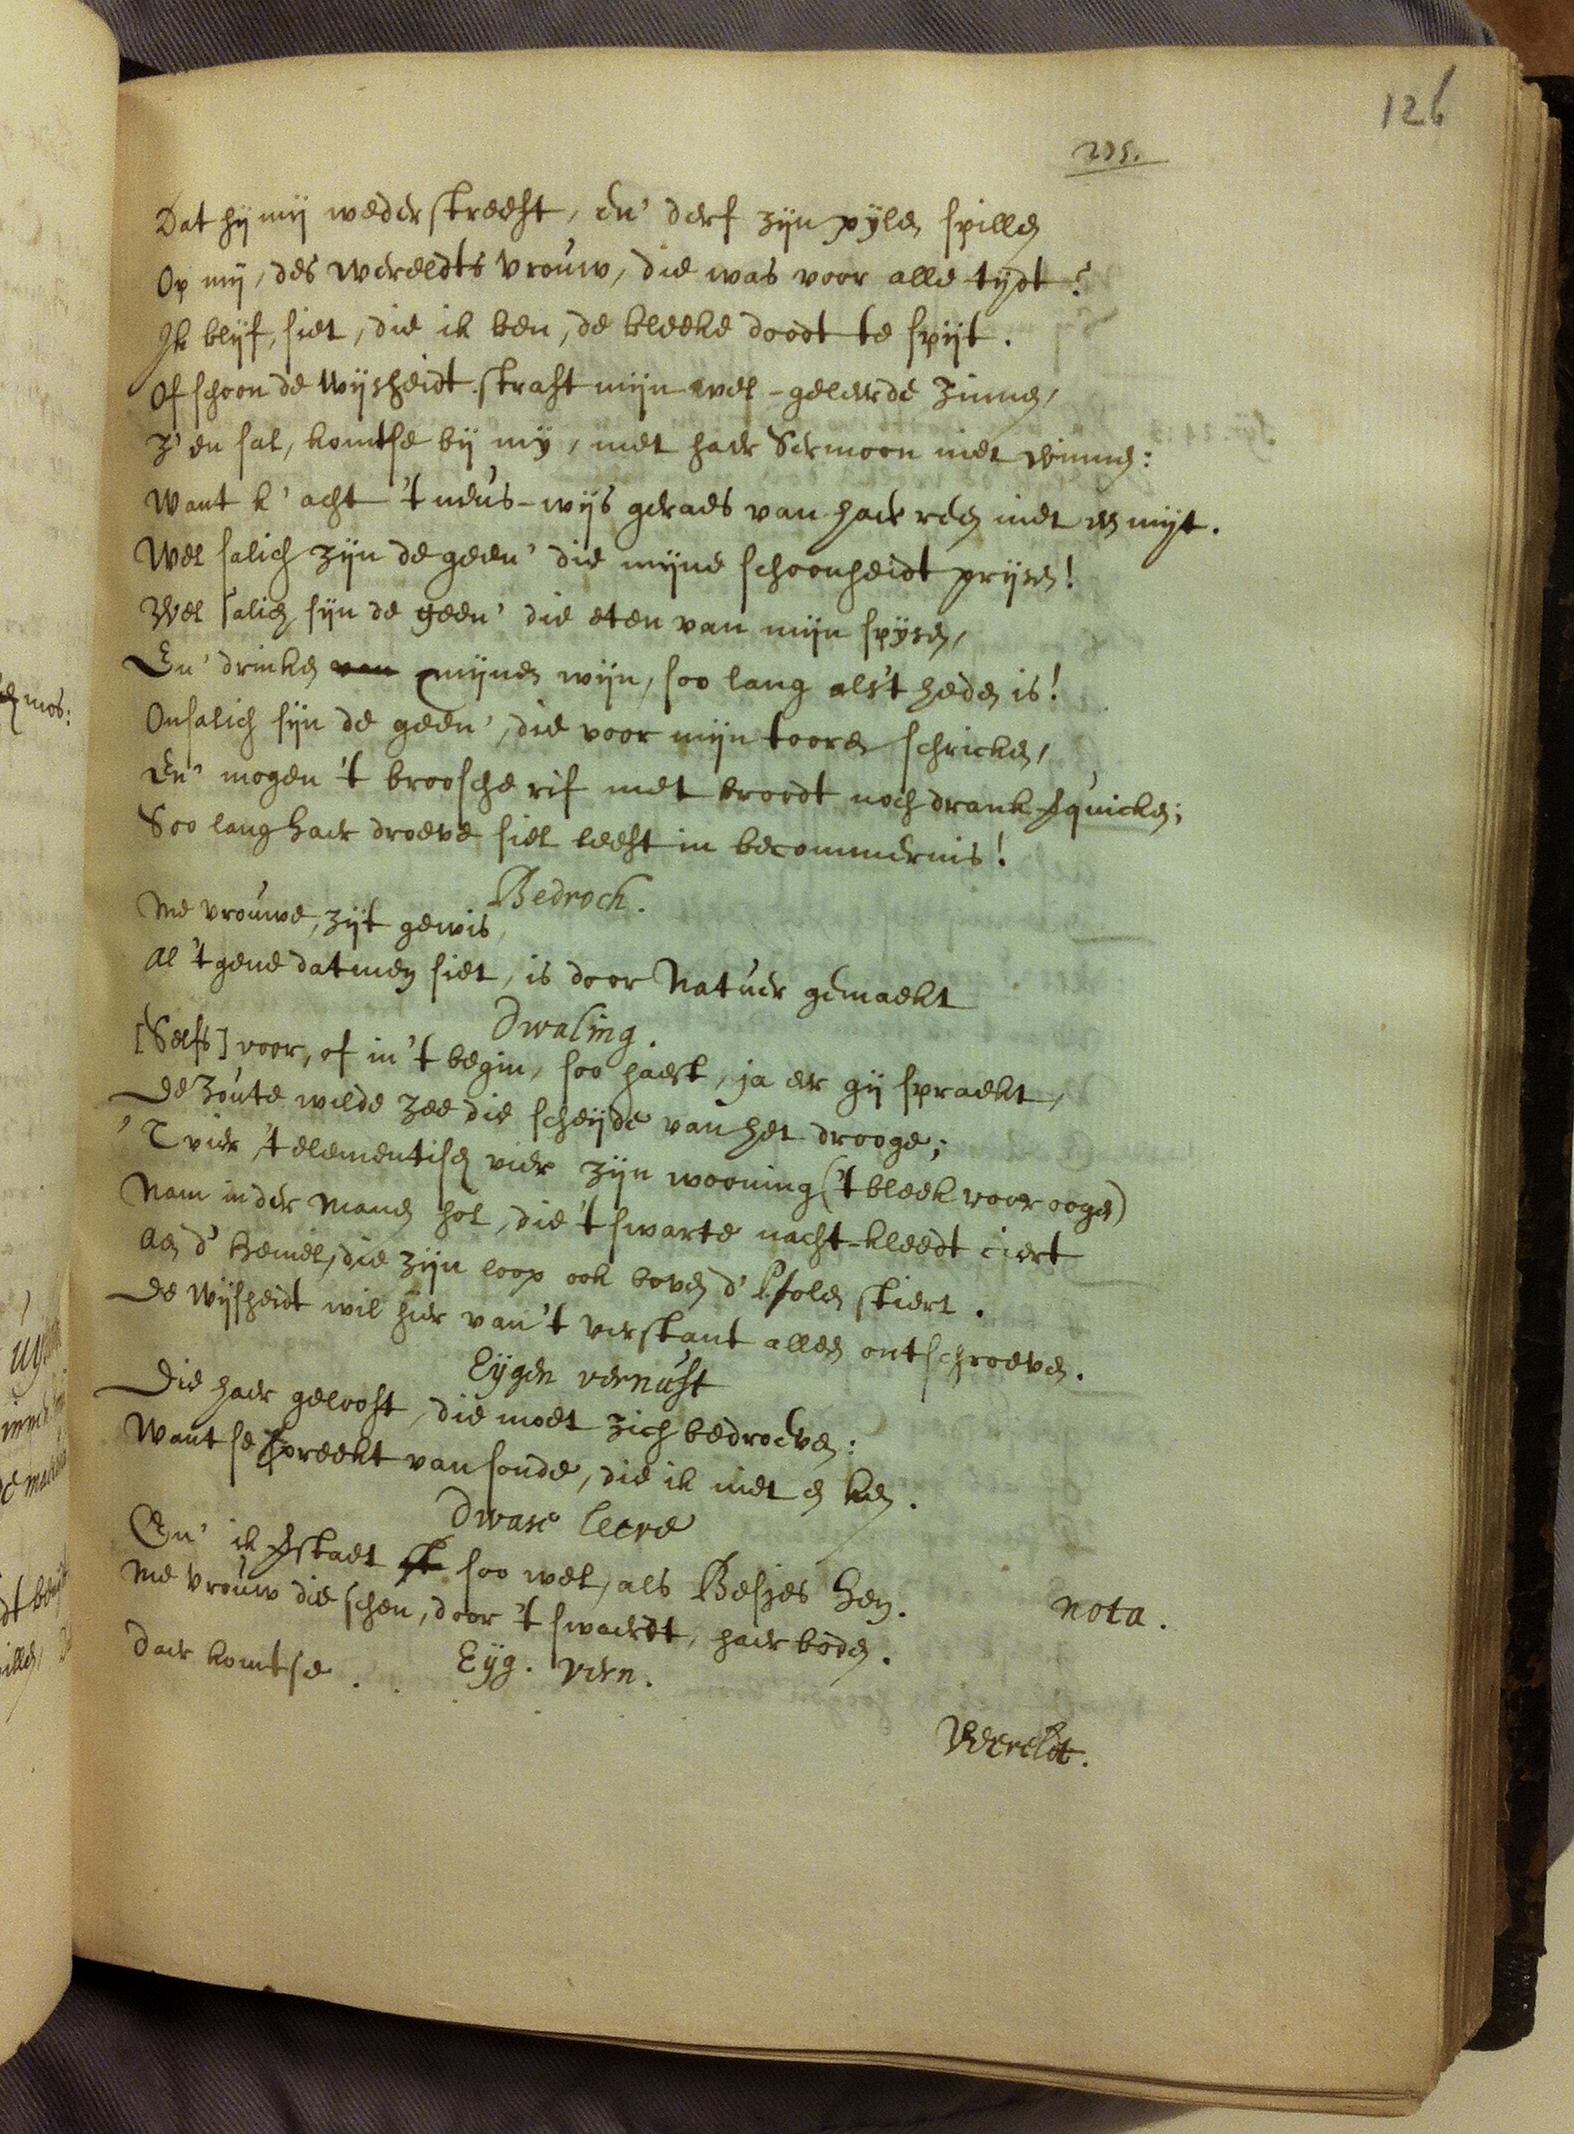 126
235.
Dat hy mij wederstreeft, en' derf zijn pylen spillen
Op mij, des Wereldts vrouw, die was voor alle tydt?
Ik blijf, siet, die ik ben, de bleeke doodt te spijt.
Of schoon de Wijsheidt straft mijn wel-geleerde zinnen,
Z' en sal, komtse bij mij, met haer Sermoon niet winnen:
Want k' acht 't neus-wijs geraes van haer reen niet een mijt.
Wel salich zijn de geen' die mijne schoonheidt prijsen!
Wel salich sijn de geen' die eten van mijn spijsen,
En' drinken van mijnen wijn, soo lang als't heden is!
Onsalich sijn de geen', die voor mijn tooren schricken,
En' mogen 't broosche rif met broodt noch drank quicken;
Soo lang haer droeve siel leeft in becommernis!
Bedroch.
Me vrouwe, zijt gewis,
Al 't gene datmen siet, is door Natuer gemaekt
Dwaling.
[Selfs] voor, of in 't begin, soo haest, ja eer gij spraekt,
De zoute wilde zee die scheyde van het drooge;
'T vier, 't elementisch vier zijn wooning ('t bleek voor oogen)
Nam in der Manen hol, die 't swarte nacht-kleedt ciert
Aen d' hemel, die zijn loop ook boven d' Polen stiert.
De Wijsheidt wil hier van 't verstant alleen ontschroeven.
Eygen vernuft
Die haer gelooft, die moet zich bedroeven:
Want se spreekt van sonde, die ik niet en ken.
Dwase leere
En' ik staet soo wel, als Besjes hen.
nota.
Me vrouw die schen, door 't swaerdt, haer boden.
Eyg. vern.
Daer komtse . . .
Werelt.